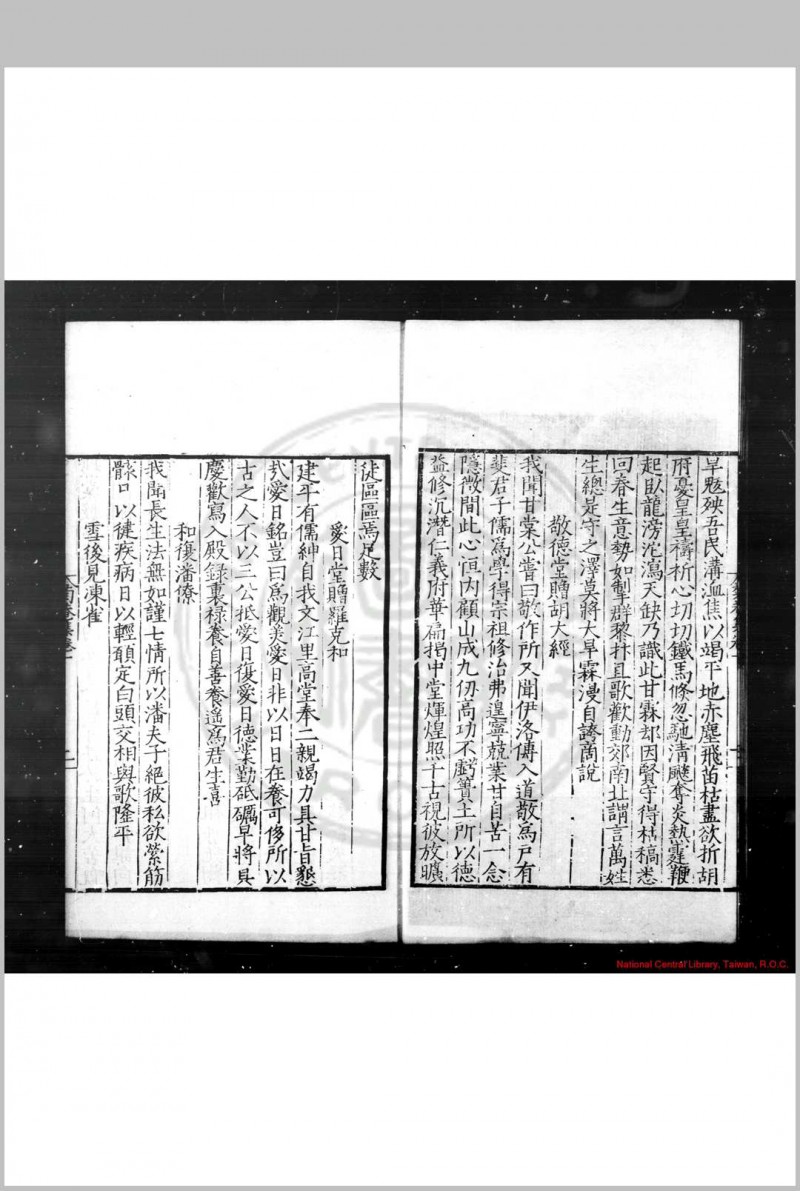 旱魃殃吾民溝洫焦以竭平地赤塵飛苗枯盡欲折胡
府憂皇皇禱祈心切切鐵馬倏忽馳清飈奪炎熱靂鞭
起臥龍滂沱瀉天缺乃識此甘霖却因賢守得枯槁悉
回春生意勢如掣群黎抃且歌歡動郊南北謂言萬姓
生總是守之澤莫將大旱霖漫自誇商說
敬德堂贈胡大經
我聞甘棠公嘗曰敬作所又聞伊洛傳入道敬爲戶有
斐君子儒爲學得宗祖修治弗遑寧兢業甘自苦一念
隱微間此心恒内顧山成九仞高功不虧簣土所以德
益修沉潛仁義府華扁揭中堂煇煌照千古視彼放曠
徒區區焉足數
愛日堂贈羅克和
建平有儒紳自我文江里高堂奉二親竭力具甘旨懇
求愛日銘豈曰爲觀美愛日非以日日在養可侈所以
古之人不以三公抵愛日復愛日德業勤砥礪早將具
慶歡寫入殿録裏祿養自善養遥爲君生喜
和復潘僚
我聞長生法無如謹七情所以潘夫子絕彼私欲縈筋
骸日以健疾病日以輕頤定白頭交相與歌隆平
雪後見凍雀
National Central Library, Taiwan, R.O.C.